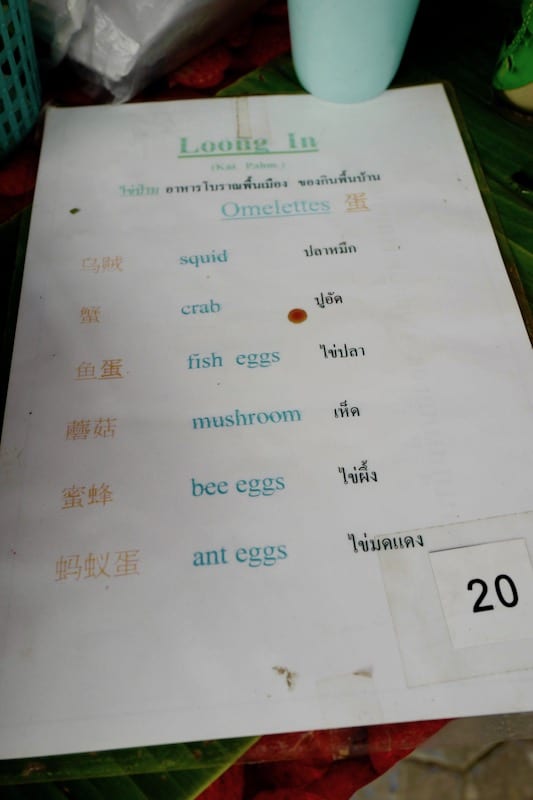 Loong In
(Kai Palm)
ไข่ป่าม อาหารโบราณพื้นเมือง ของกินพื้นบ้าน
Omelettes 蛋
乌贼 squid ปลาหมึก
蟹 crab ปูอัด
鱼蛋 fish eggs ไข่ปลา
蘑菇 mushroom เห็ด
蜜蜂 bee eggs ไข่ผึ้ง
蚂蚁蛋 ant eggs ไข่มดแดง
20